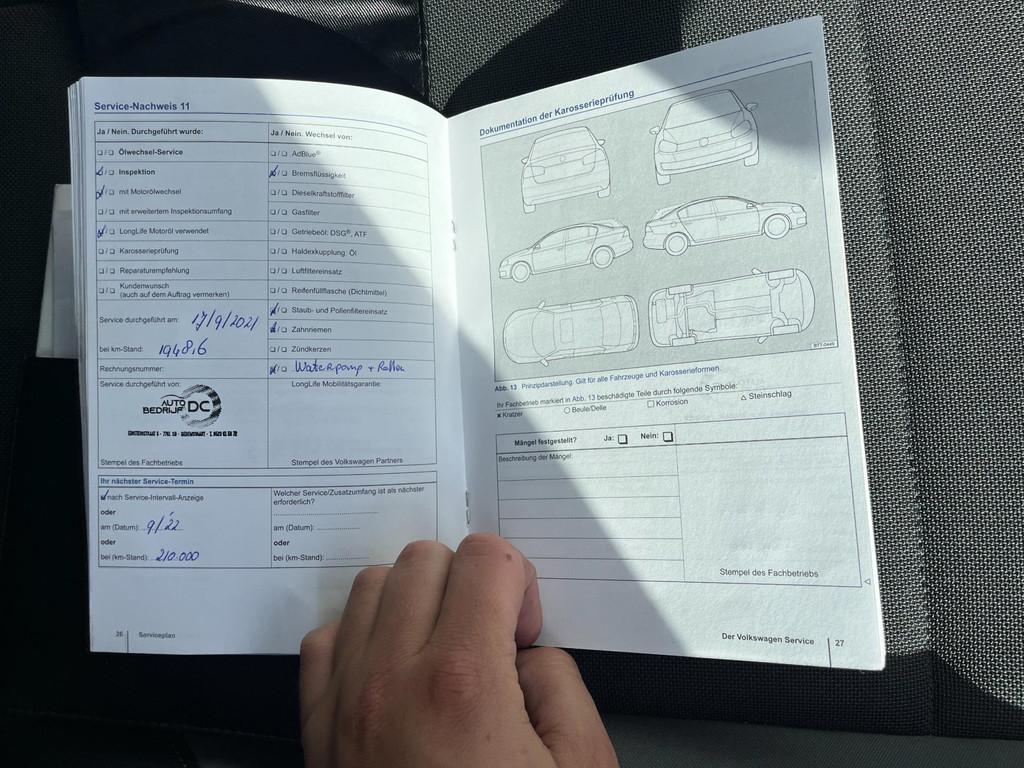 Service-Nachweis 11
Ja / Nein. Durchgeführt wurde:
❑/❑ Ölwechsel-Service
❑/❑ Inspektion
❑/❑ mit Motorölwechsel
❑/❑ mit erweitertem Inspektionsumfang
❑/❑ LongLife Motoröl verwendet
❑/❑ Karosserieprüfung
❑/❑ Reparaturempfehlung
❑/❑ Kundenwunsch
(auch auf dem Auftrag vermerken)
Service durchgeführt am: 17/9/2021
bei km-Stand: 194816
Rechnungsnummer:
Service durchgeführt von:
AUTO
BEDRIJF DC
Stempel des Fachbetriebs
Ja / Nein. Wechsel von:
❑/❑ AdBlue®
❑/❑ Bremsflüssigkeit
❑/❑ Dieselkraftstofffilter
❑/❑ Gasfilter
❑/❑ Getriebeöl: DSG®, ATF
❑/❑ Haldexkupplung: Öl
❑/❑ Luftfiltereinsatz
❑/❑ Reifenfüllflasche (Dichtmittel)
❑/❑ Staub- und Pollenfiltereinsatz
❑/❑ Zahnriemen
❑/❑ Zündkerzen
❑/❑ Waterpomp + Rollen
LongLife Mobilitätsgarantie:
Stempel des Volkswagen Partners
Ihr nächster Service-Termin
nach Service-Intervall-Anzeige
oder
am (Datum): 9/22
oder
bei (km-Stand): 210.000
Welcher Service/Zusatzumfang ist als nächster
erforderlich?
am (Datum):
oder
bei (km-Stand):
26 Serviceplan
Dokumentation der Karosserieprüfung
Abb. 13 Prinzipdarstellung. Gilt für alle Fahrzeuge und Karosserieformen.
Ihr Fachbetrieb markiert in Abb. 13 beschädigte Teile durch folgende Symbole:
✖ Kratzer ○ Beule/Delle □ Korrosion △ Steinschlag
Mängel festgestellt? Ja: ❑ Nein: ❑
Beschreibung der Mängel:
Stempel des Fachbetriebs
Der Volkswagen Service 27